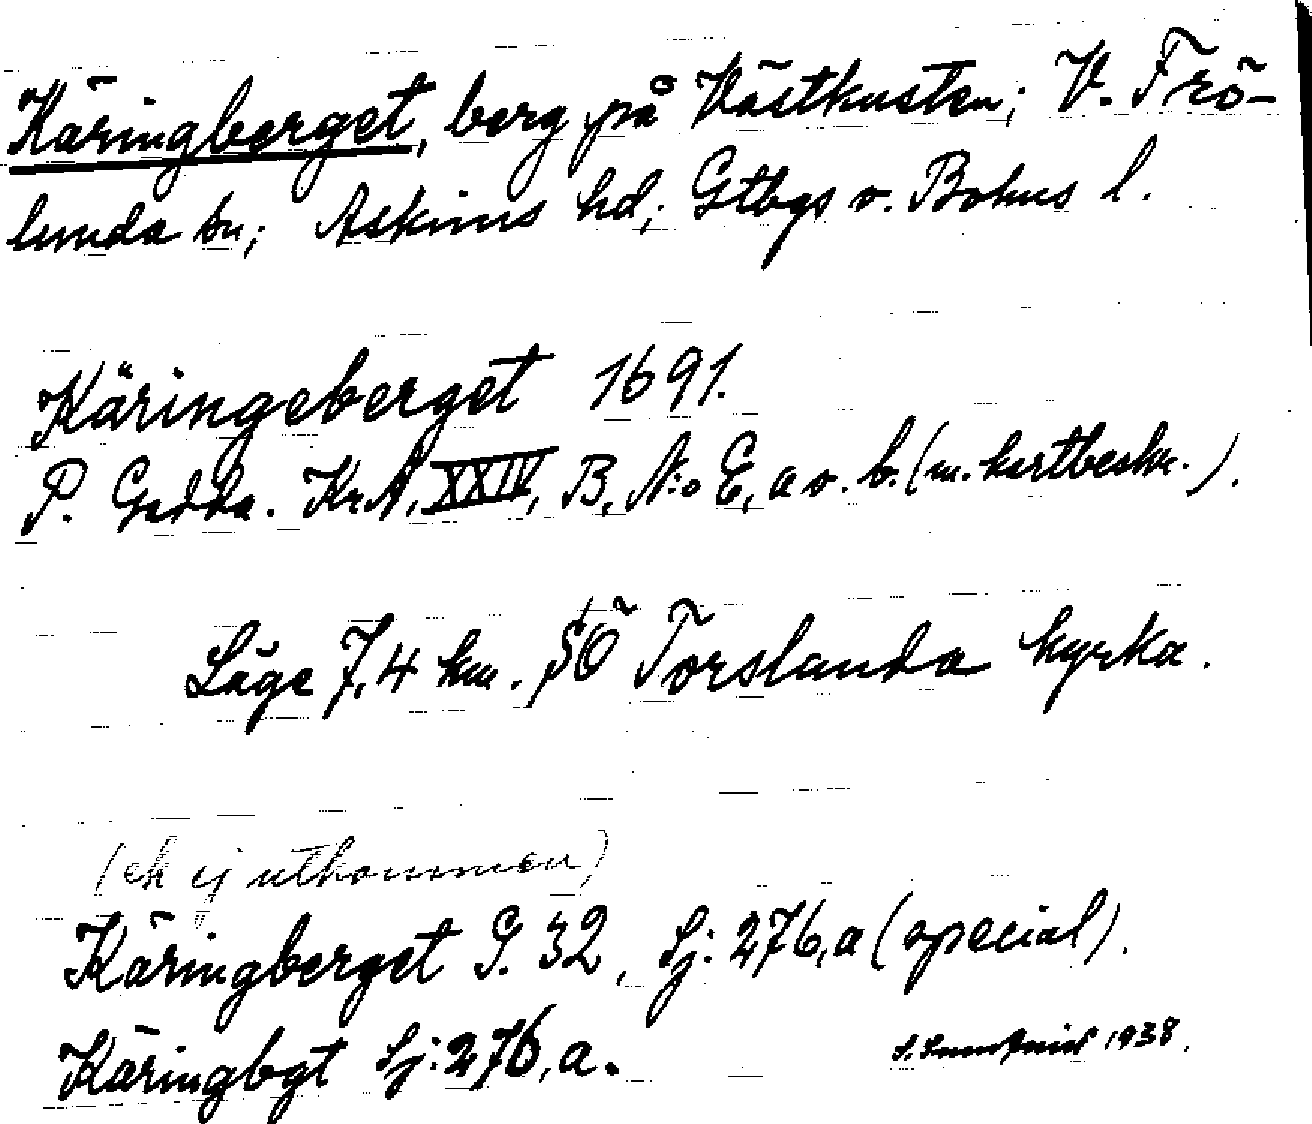 Käringberget, berg på Västkusten; V. Frö-
lunda sn; Askims hd; Gtbgs o. Bohus l.
Käringeberget 1691.
P. Gedda. Kr.A, XXIV, B, N:o E, a o. b. (m. kartbeskr.).
Läge 7,4 km. SÖ Torslanda kyrka.
(ek ej utkommen)
Käringberget G. 32, Sj: 276,a (special).
Käringbgt Sj: 276,a.
1938.